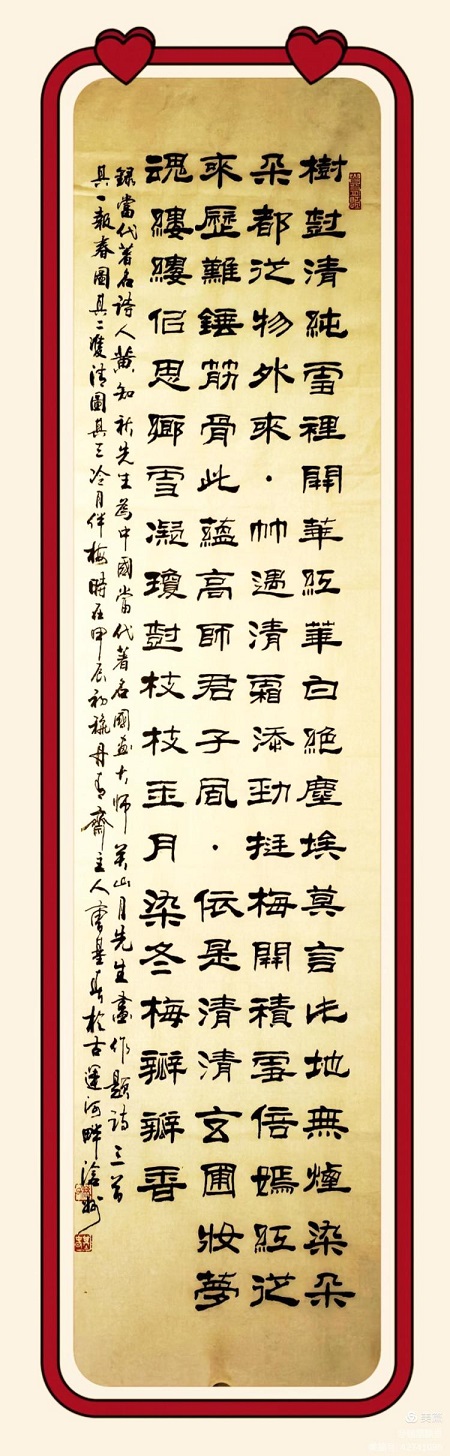 樹封清純雪裡開華紅華白絶塵埃莫言此地無煙染朵
朵都從物外來·竹遇清霜添勁挺梅開積雪倍嫣紅從
來歷難錘筋骨此蘊高師君子風·依是清清玄圃妝夢
魂縷縷侶思鄉雪凝瓊封枝枝玉月染冬梅瓣瓣香
録當代著名詩人黄知新先生為中國當代著名國畫大師關山月先生畫作題詩三首
其一報春圖其二雙清圖其三冷月伴梅時在甲辰初秋丹青齋主人於古運河畔滄州
美篇